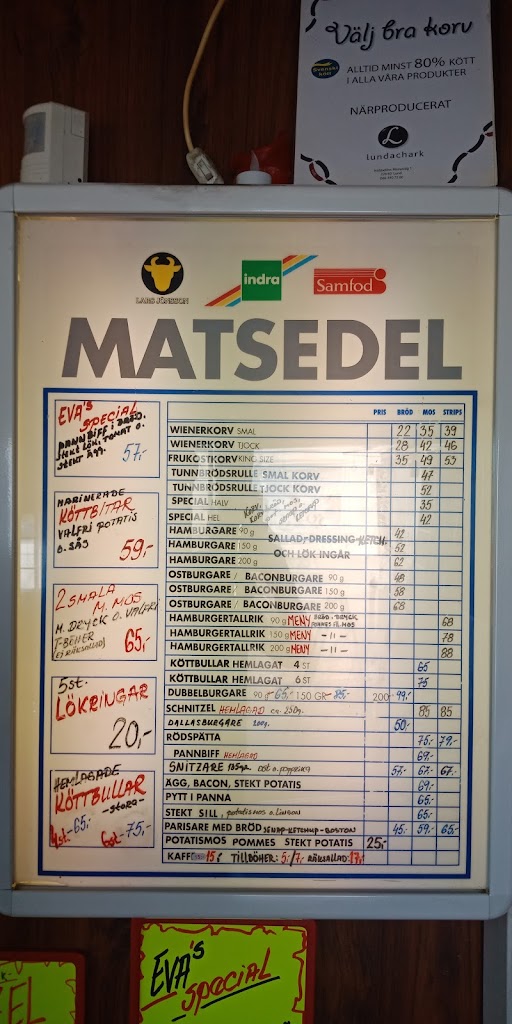 Välj bra korv
Svenskt kött
ALLTID MINST 80% KÖTT
I ALLA VÅRA PRODUKTER
NÄRPRODUCERAT
L
Lundachark
LARS JÖNSSON
indra
Samfod
MATSEDEL
EVA'S
SPECIAL
PANNBIFF I BRÖD.
STEKT LÖK, TOMAT O.
STEKT ÄGG.
57,-
MARINERADE
KÖTTBITAR
VALFRI POTATIS
O. SÅS
59,-
2 SMALA
M. MOS
M. DRYCK O. VALFRI
T-BEHÖR
(EJ RÄKSALLAD)
65,-
5st.
LÖKRINGAR
20,-
HEMLAGADE
KÖTTBULLAR
-STORA-
4st.-65,-
6st-75,-
PRIS BRÖD MOS STRIPS
WIENERKORV SMAL 22 35 39
WIENERKORV TJOCK 28 42 46
FRUKOSTKORV KING SIZE 35 49 53
TUNNBRÖDSRULLE SMAL KORV 47
TUNNBRÖDSRULLE TJOCK KORV 52
SPECIAL HALV 35
SPECIAL HEL 42
HAMBURGARE 90 g 42
HAMBURGARE 150 g SALLAD, DRESSING KETCH. 52
HAMBURGARE 200 g OCH LÖK INGÅR 62
OSTBURGARE / BACONBURGARE 90 g 48
OSTBURGARE / BACONBURGARE 150 g 58
OSTBURGARE / BACONBURGARE 200 g 68
HAMBURGERTALLRIK 90 g MENY BRÖD. DRYCK 68
HAMBURGERTALLRIK 150 g MENY -11- 78
HAMBURGERTALLRIK 200 g MENY -11- 88
KÖTTBULLAR HEMLAGAT 4 ST 65
KÖTTBULLAR HEMLAGAT 6 ST 75
DUBBELBURGARE 90 g-65,- 150 GR- 85- 200- 99,-
SCHNITZEL HEMLAGAD ca. 250g. 85 85
DALLASBURGARE 200g. 50,-
RÖDSPÄTTA 75,- 79,-
PANNBIFF HEMLAGAD 69,-
SNITZARE ost o. paprika 57,- 67,- 67,-
ÄGG, BACON, STEKT POTATIS 69,-
PYTT I PANNA 65,-
STEKT SILL, potatismos o. lingon 65,-
PARISARE MED BRÖD SENAP-KETCHUP-BOSTON 45,- 59,- 65,-
POTATISMOS POMMES STEKT POTATIS 25,-
KAFFE 15,- TILLBÖHER: 5,-/7,- RÄKSALLAD: 17,-
EVA'S
SPECIAL